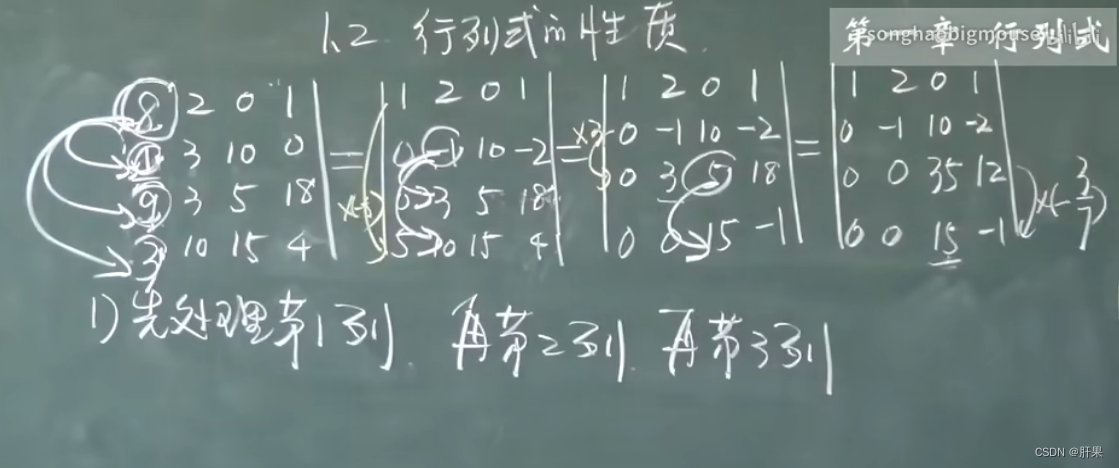 1.2 行列式的性质
songhaobigmouse
第一章 行列式
8 2 0 1 | = | 1 2 0 1 | = | 1 2 0 1 | = | 1 2 0 1
3 10 0 | 0 -1 10 -2 | ×3 0 -1 10 -2 | 0 -1 10 -2
9 3 5 18 | ×(-5) 0 3 5 18 | 0 3 5 18 | 0 0 35 12 ×(-3/7)
3 10 15 4 | 5 10 15 4 | 0 0 15 -1 | 0 0 15 -1
1) 先处理第1列. 再第2列. 再第3列
CSDN @肝果